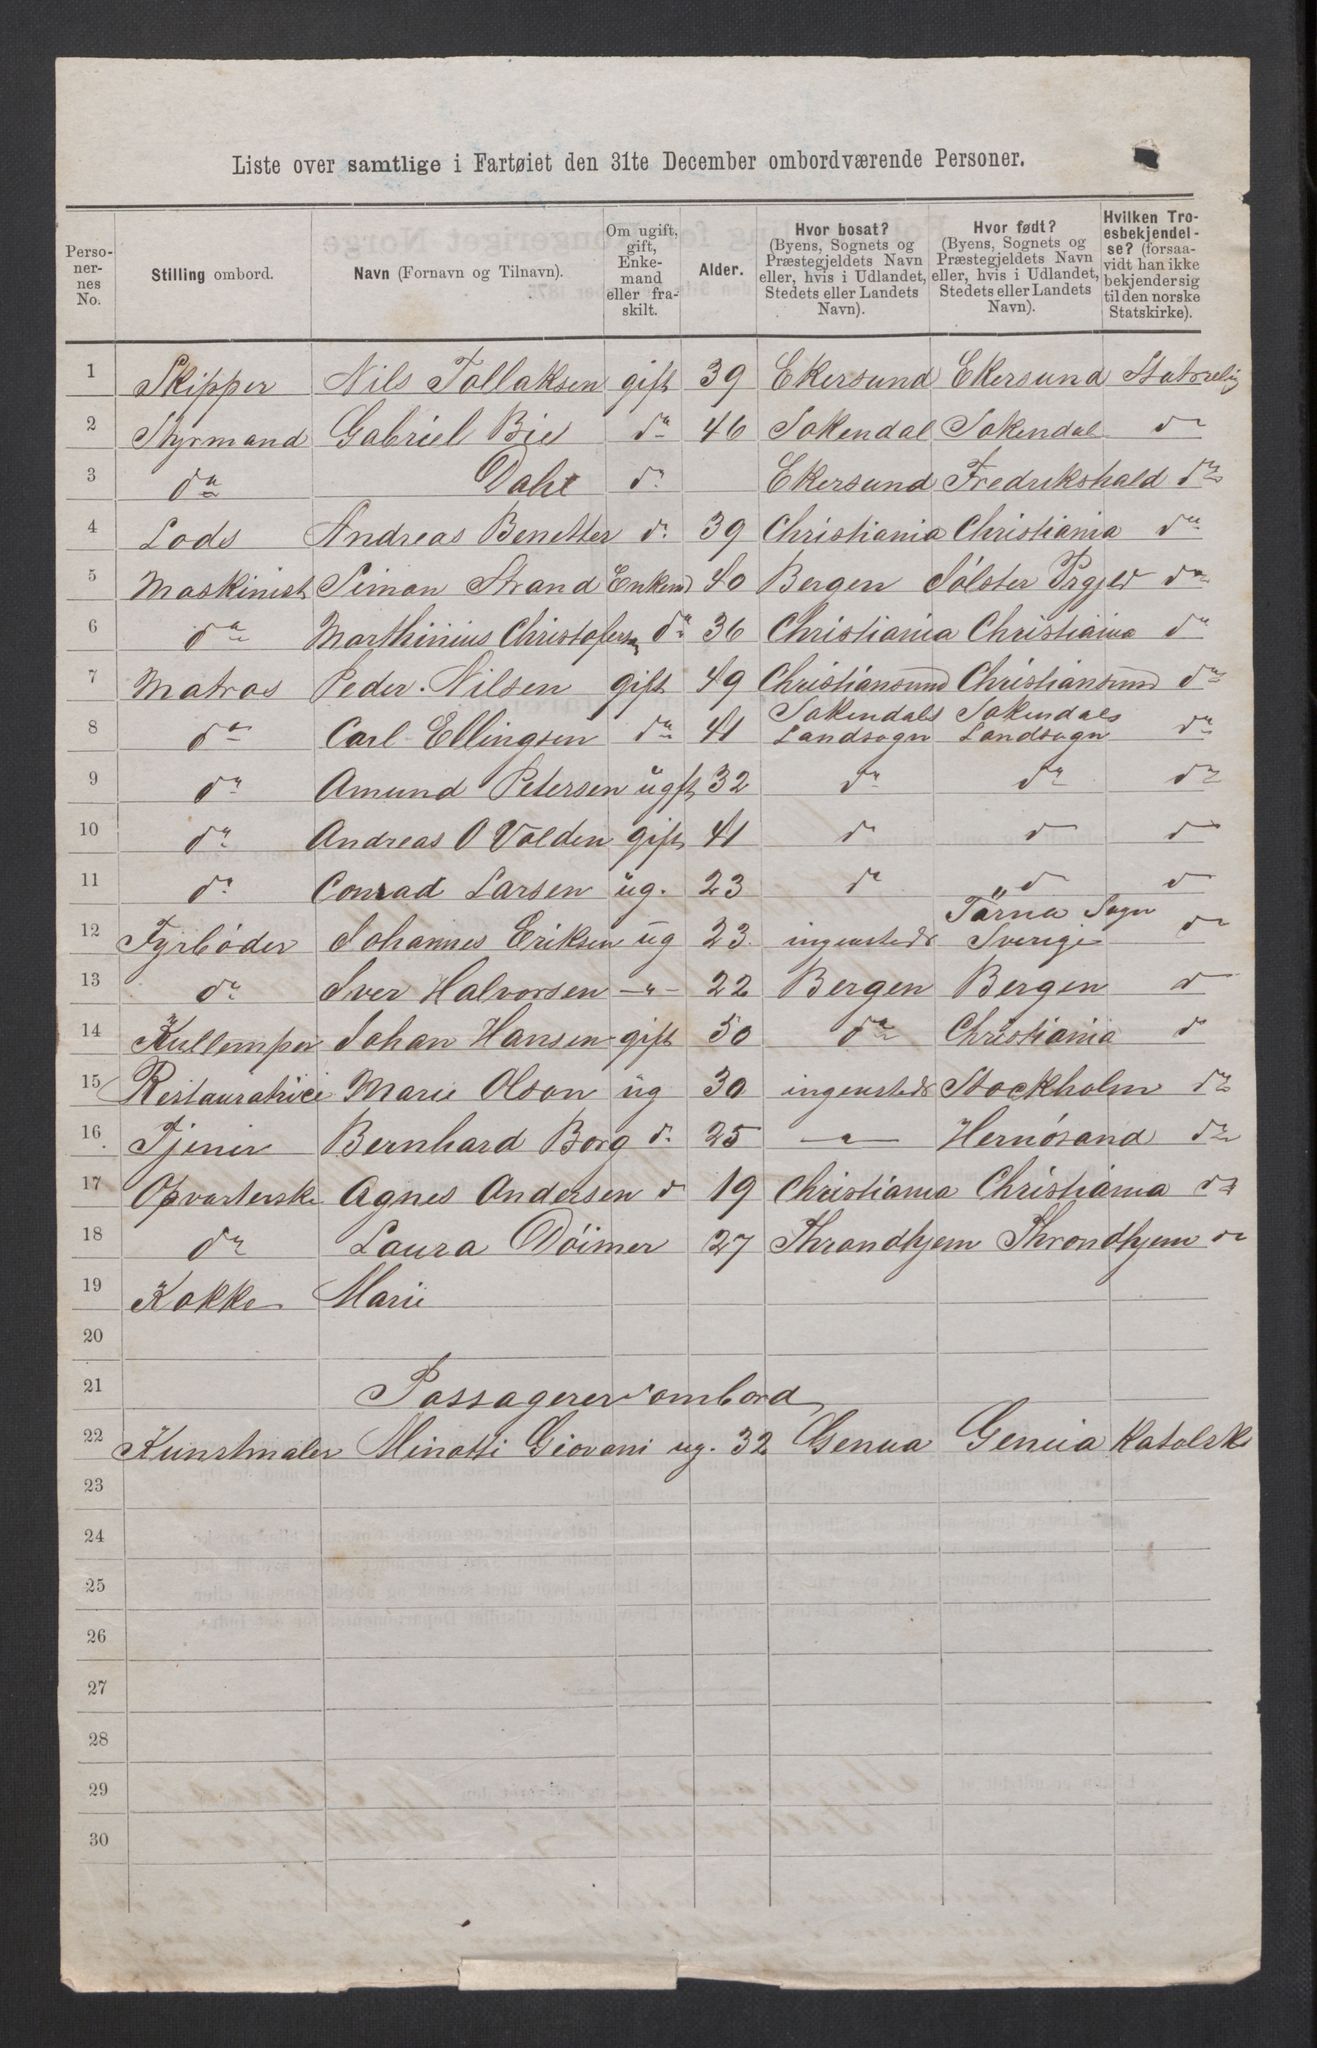 Liste over samtlige i Fartøiet den 31te December ombordværende Personer.
Personernes No. | Stilling ombord. | Navn (Fornavn og Tilnavn). | Om ugift, gift, Enkemand eller fraskilt. | Alder. | Hvor bosat? (Byens, Sognets og Præstegjeldets Navn eller, hvis i Udlandet, Stedets eller Landets Navn). | Hvor født? (Byens, Sognets og Præstegjeldets Navn eller, hvis i Udlandet, Stedets eller Landets Navn). | Hvilken Troesbekjendelse? (forsaavidt han ikke bekjender sig til den norske Statskirke).
1 Skipper Nils Tollaksen gift 39 Ekersund Ekersund
2 Styrmand Gabriel Bie do 46 Sokendal Sokendal do
3 do Dahl do Ekersund Fredrikshald do
4 Lods Andreas Benetter do 39 Christiania Christiania do
5 Maskinist Simon Strand Enkem 40 Bergen Sølster Prgjeld do
6 do Marthinius Christofersen do 36 Christiania Christiania do
7 Matros Peder Nilsen gift 49 Christiansund Christiansund do
8 do Carl Ellingsen do 41 Sokendals Landsogn Sokendals Landsogn do
9 do Amund Petersen ugift 32 do do do
10 do Andreas O Valden gift 41 do do do
11 do Conrad Larsen ug. 23 do do do
12 Fyrbøder Johannes Eriksen ug 23 ingensteds Tärna Sogn Sverige do
13 do Iver Halvorsen -"- 22 Bergen Bergen do
14 Kullemper Johan Hansen gift 50 do Christiania do
15 Restauratrice Marie Olson ug 30 ingensteds Stockholm do
16 Tjener Bernhard Borg do 25 -"- Hernösand do
17 Opvarterske Agnes Andersen do 19 Christiania Christiania do
18 do Laura Döimer 27 Throndhjem Throndhjem do
19 Kokke Marie
20
21 Passagerer ombord
22 Kunstmaler Minotti Giovani ug. 32 Genua Genua Katolsk
23
24
25
26
27
28
29
30